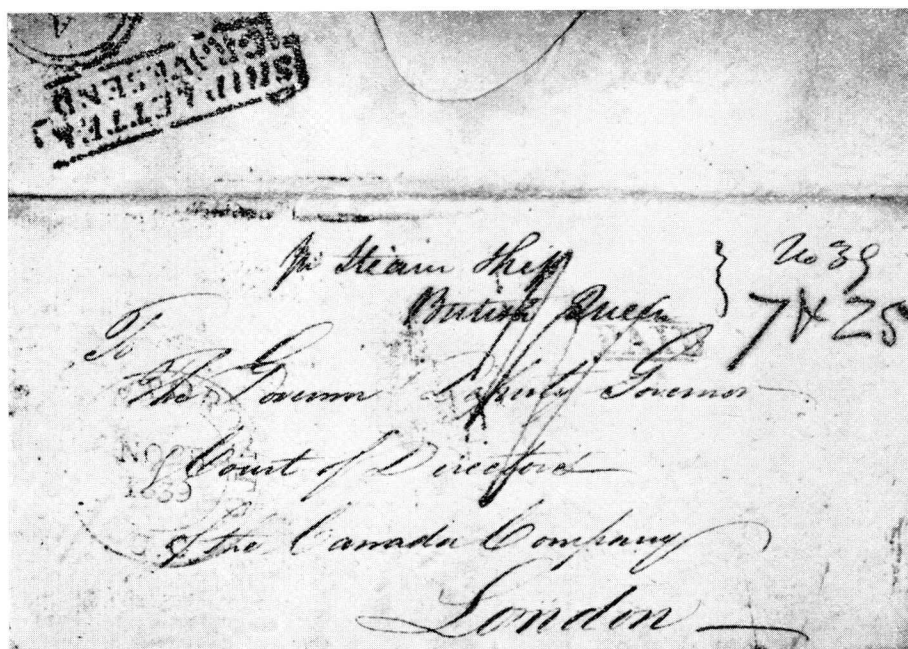 SHIP LETTER
GRAVESEND
pr Steam Ship
British Queen
No 39
7 & 25
To
The Governor Deputy Governor
& Court of Directors
of the Canada Company
London
NOV
1839